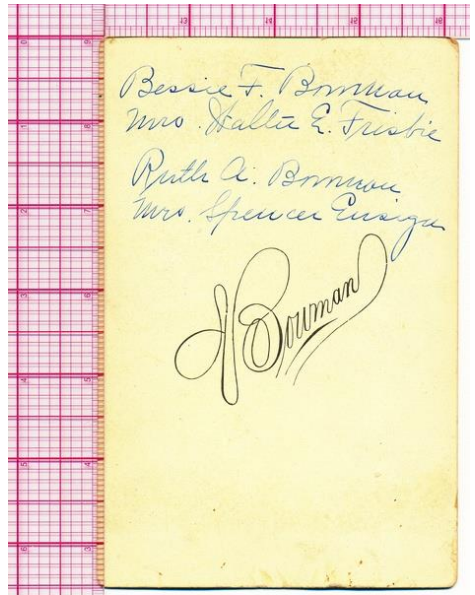 Bessie F. Bowman
Mrs. Walter E. Frisbie
Ruth A. Bowman
Mrs. Spencer Ensign
Bowman